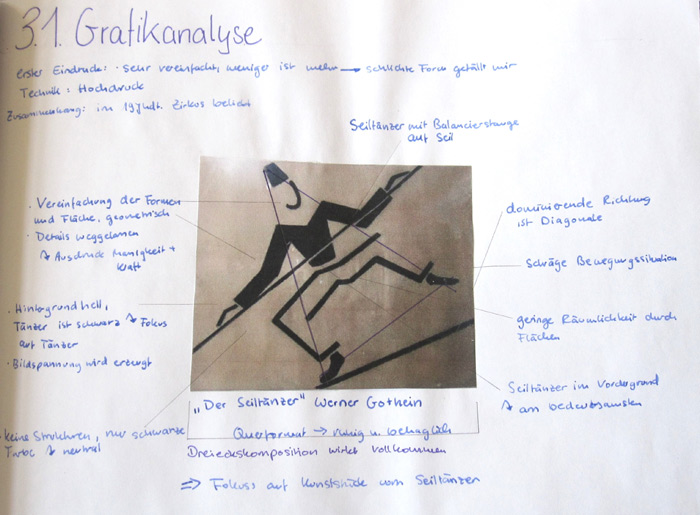 3.1. Grafikanalyse
erster Eindruck: · sehr vereinfacht, weniger ist mehr → schlichte Form gefällt mir
Technik: Hochdruck
Zusammenhang: im 19 Jhdt. Zirkus beliebt
Seiltänzer mit Balancierstange
auf Seil
· Vereinfachung der Formen
und Fläche, geometrisch
· Details weggelassen
↳ Ausdruck +
Kraft
· Hintergrund hell,
Tänzer ist schwarz ↳ Fokus
auf Tänzer
· Bildspannung wird erzeugt
keine, nur schwarze
Farbe ↳ neutral
dominierende Richtung
ist Diagonale
schräge Bewegungssituation
geringe Räumlichkeit durch
Flächen
Seiltänzer im Vordergrund
↳ am bedeutsamsten
„Der Seiltänzer" Werner Gothein
Querformat → ruhig u. behaglich
Dreieckskomposition wirkt vollkommen
⇒ Fokus auf Kunststück vom Seiltänzer